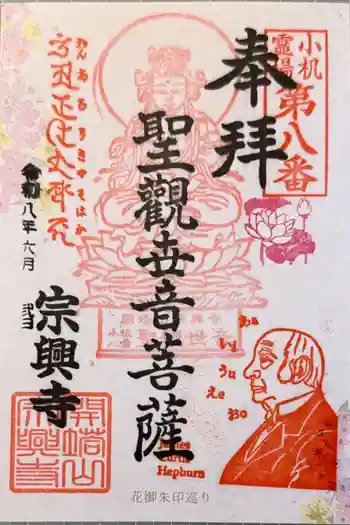 小机
霊場
第八番
奉拝
聖觀世音菩薩
おんあろりきやそはか
令和八年六月
弐日
宗興寺
開塔山
宗興寺
あa
いi
うu
えe
おo
James
Curtis
Hepburn
花御朱印巡り